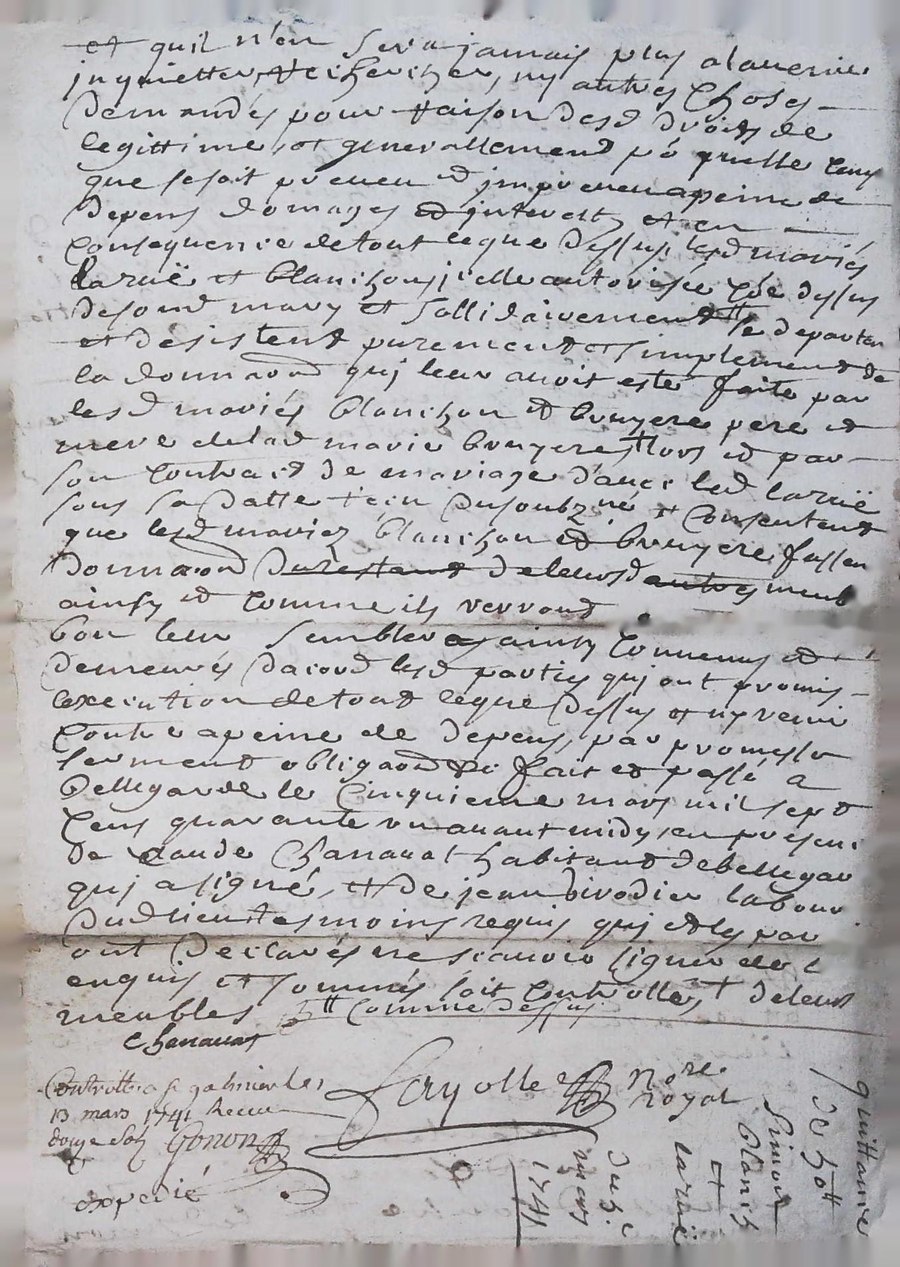 et quil n'en sera jamais plus alavenir
inquiettes, recherches, ny autres choses
demandés pour raison desd droits de
legittime, et generallement po quelle cause
que se soit preveu et impreveu apeine de
depens domages et interests et en
consequence de tout ceque dessus lesd mariés
laruë et blanchon, icelle autorisée que dessus
desond mary et sollidairement se departen
et désistent purement et simplement de
la donnaon quj leur avoit esté faite par
lesd mariés blanchon et bruyere pere et
mere delad marie bruyere et par
son contract de mariage d'avec led laruë
sous sa datte reçu du soubzné et consentent
que lesd mariez blanchon et bruyere fassen
donnaon du restant deleursd autres meub
ainsy et comme ils verront
bon leur semblera, ainsy convenus et
demeurés dacord lesd parties quj ont promis
execution de tout ceque dessus et ny venir
contre apeine de depens, par promesse
serment obligaon fait et passé a
Bellegarde le cinquieme mars mil sept
cens quarante un avant midy en presence
de claude Chanavat habitant debellegar
quj a signé, et de jean divodier labour
dudlieu tesmoins requis quj et les par
ont declarés ne scavoir signer de ce
enquis et sommés soit controllés deleurs
meubles comme dessus
Chanavat
Controllé a st galmier le
13 mars 1741 Receu
douze sols Gonon
expedié
Fayolle Nore
royal
quittance
de 50tt
Simon
blanch
et
laruë
du 5e
mars
1741